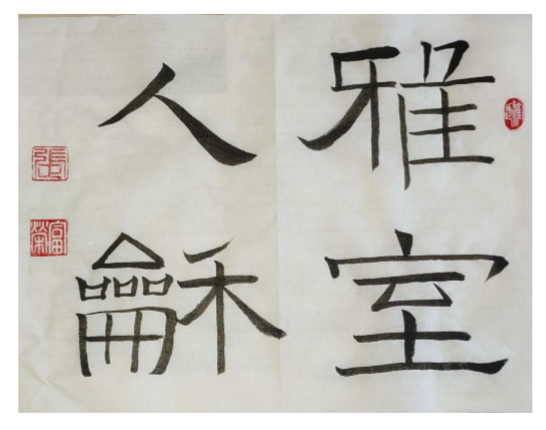 雅室
人龢
張
富榮